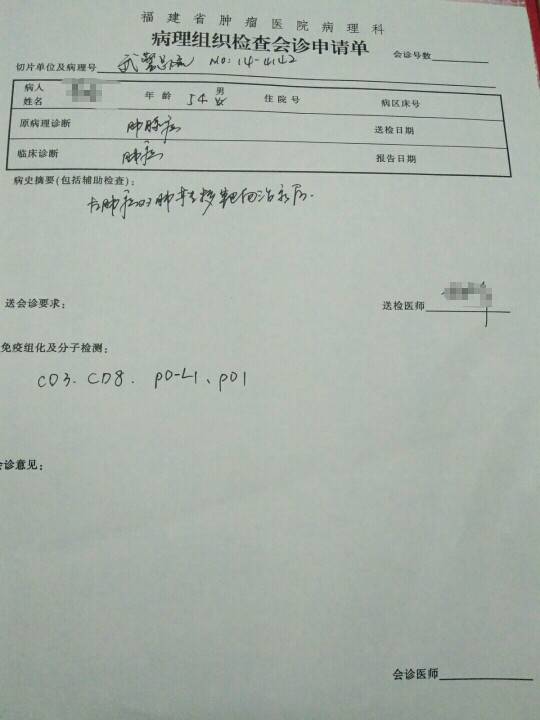 福建省肿瘤医院病理科
病理组织检查会诊申请单
会诊号数
切片单位及病理号 武警总院 NO: 14-4142
病人姓名 年龄 54 男 女 住院号 病区床号
原病理诊断 肺腺癌 送检日期
临床诊断 肺癌 报告日期
病史摘要(包括辅助检查):
右肺癌 肺转移靶向治疗后.
送会诊要求: 送检医师
免疫组化及分子检测:
CD3. CD8. PD-L1、PD1
会诊意见:
会诊医师